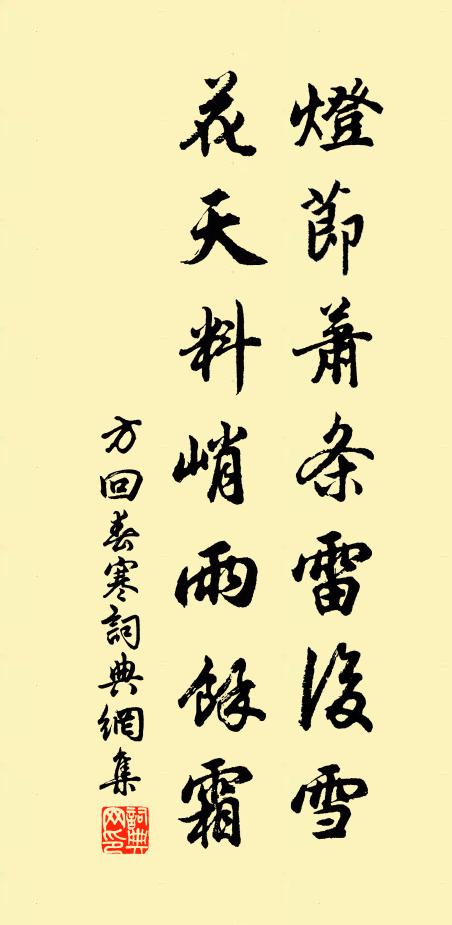 燈節蕭条雷後雪
花天料峭雨餘霜
方回春寒詞典網集
詞典网印